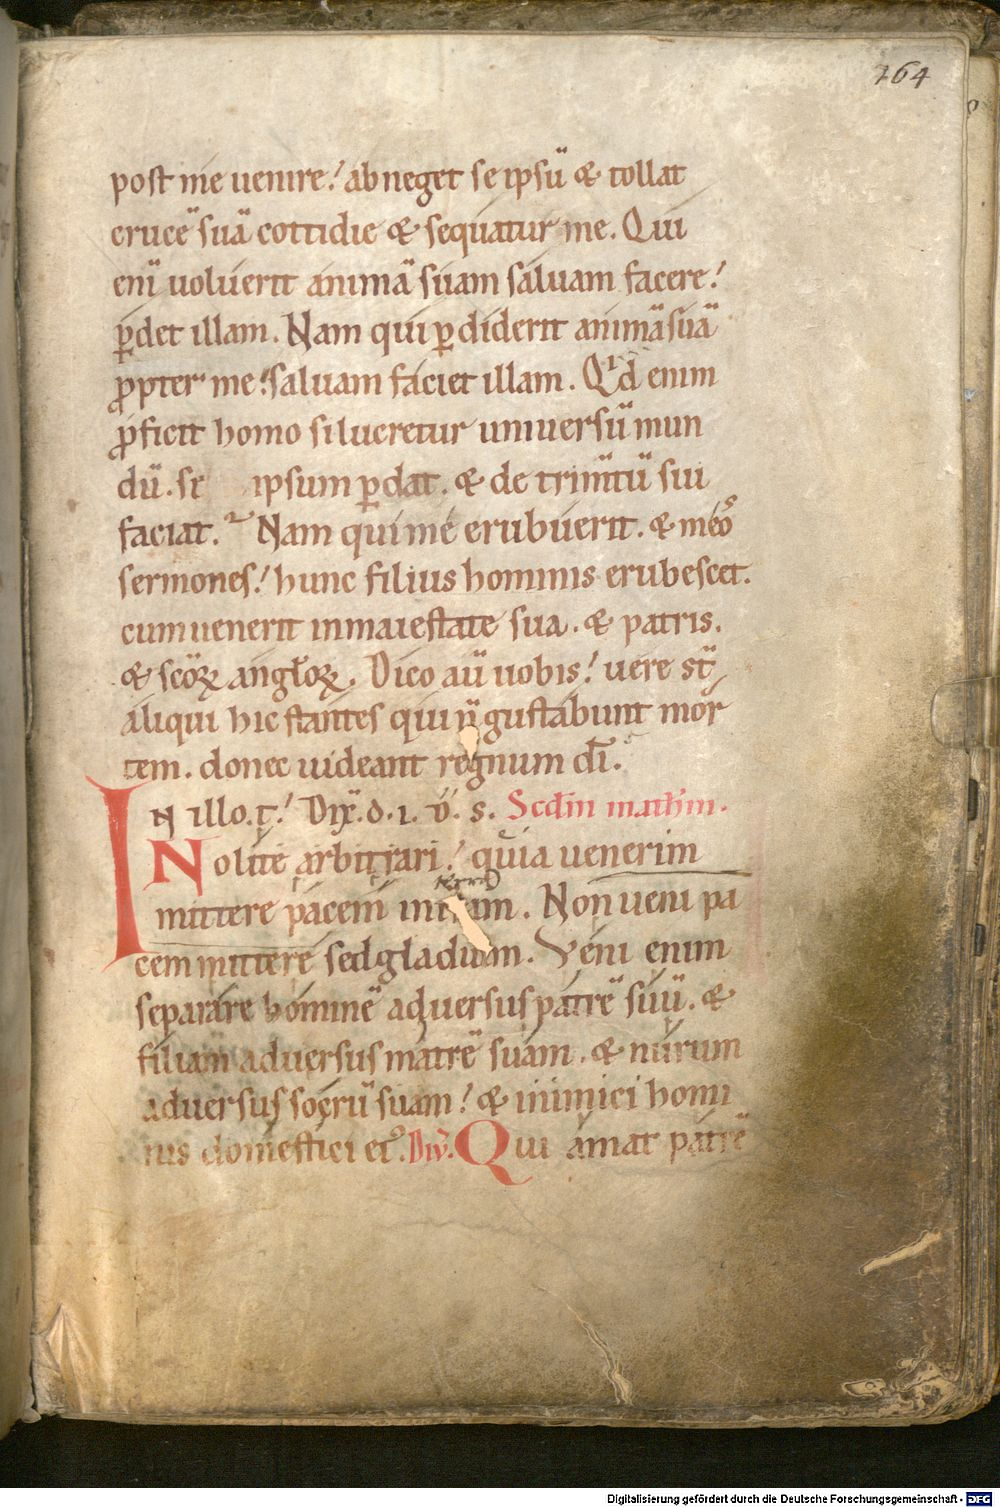 164
post me uenire! abneget se ipsū & tollat
crucē suā cottidie & sequatur me. Qui
enī uoluerit animā suam saluam facere!
p̱det illam. Nam qui p̱diderit animā suā
ꝓpter me! saluam faciet illam. Qͥd enim
ꝓficit homo si lucretur uniuersū mun
dū. se ipsum p̱dat. & de trim̄tū sui
faciat. Nam qui me erubuerit. & meoˢ
sermones! hunc filius hominis erubescet.
cum uenerit in maiestate sua. & patris.
& scōꝝ angłoꝝ. Dico aū uobis! uere st̄
aliqui hic stantes qui n̄ gustabunt mor
tem. donec uideant regnum dī.
IN illo. t̄! Dix̄. d. i. v̄. s. Scdm math̄m.
Nolite arbitrari! quia uenerim
terrā
mittere pacem in terram. Non ueni pa
cem mittere sed gladium. Veni enim
separare hominē aduersus patrē suū. &
filiam aduersus matrē suam. & nurum
aduersus socrū suam! & inimici homi
nis domestici eiꝰ. Div̄. Qui amat patrē
Digitalisierung gefördert durch die Deutsche Forschungsgemeinschaft - DFG